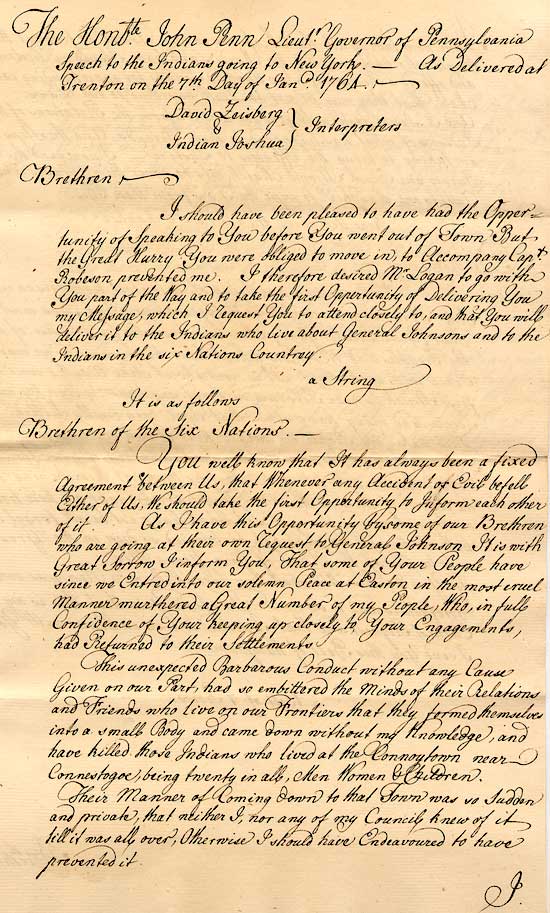 The Honble. John Penn Lieut. Governor of Pennsylvania
Speech to the Indians going to New York. — As Delivered at
Trenton on the 7th Day of Jan. 1764.
David Zeisberg
&
Indian Joshua } Interpreters
Brethren
I should have been pleased to have had the Opper=
tunity of Speaking to You before You went out of Town But
the Great Hurry You were obliged to move in, to Accompany Capt.
Robeson prevented me. I therefore desired Mr. Logan to go with
You part of the Way and to take the first Opportunity of Delivering You
my Message, which I request You to attend closely to, and that You will
deliver it to the Indians who live about General Johnsons and to the
Indians in the six Nations Countrey.
a String
It is as follows
Brethren of the Six Nations. —
You well know that It has always been a fixed
Agreement between Us, that Whenever any Accident or Evil befell
Either of Us, We should take the first Opportunity to Inform each other
of it. As I have this Opportunity by some of our Brethren
who are going at their own request to General Johnson It is with
Great Sorrow I inform You, That some of Your People have
since we Entred into our solemn Peace at Easton in the most cruel
Manner murthered a Great Number of my People, Who, in full
Confidence of Your keeping up closely to Your Engagements,
had Returned to their Settlements
This unexpected Barbarous Conduct without any Cause
Given on our Part, had so embittered the Minds of their Relations
and Friends who live on our Frontiers that they formed themselves
into a small Body and came down without my Knowledge, and
have killed those Indians who lived at the Connoytown near
Connestogoe, being twenty in all, Men Women & Children.
Their Manner of Coming down to that Town was so sudden
and private, that neither I, nor any of my Council, knew of it
till it was all over, Otherwise I should have Endeavoured to have
prevented it.
I.